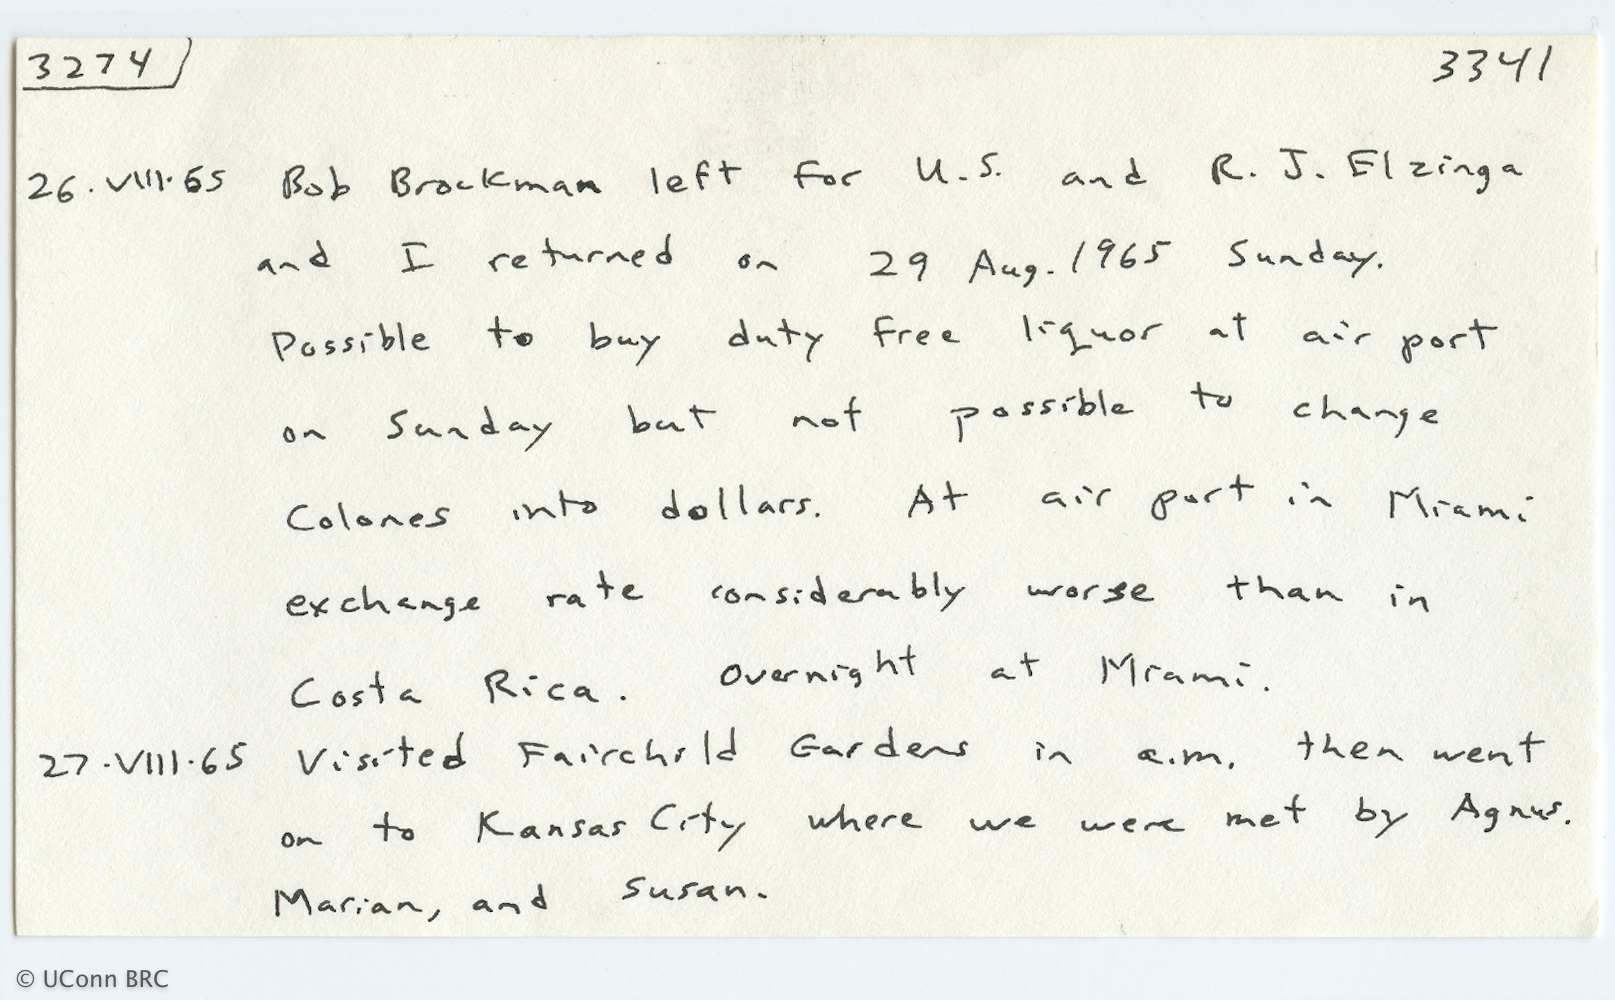 3274
3341
26.VIII.65 Bob Brockman left for U.S. and R. J. Elzinga
and I returned on 29 Aug. 1965 Sunday.
Possible to buy duty free liquor at air port
on Sunday but not possible to change
Colones into dollars. At air port in Miami
exchange rate considerably worse than in
Costa Rica. Overnight at Miami.
27.VIII.65 Visited Fairchild Gardens in a.m. then went
on to Kansas City where we were met by Agnus.
Marian, and Susan.
© UConn BRC